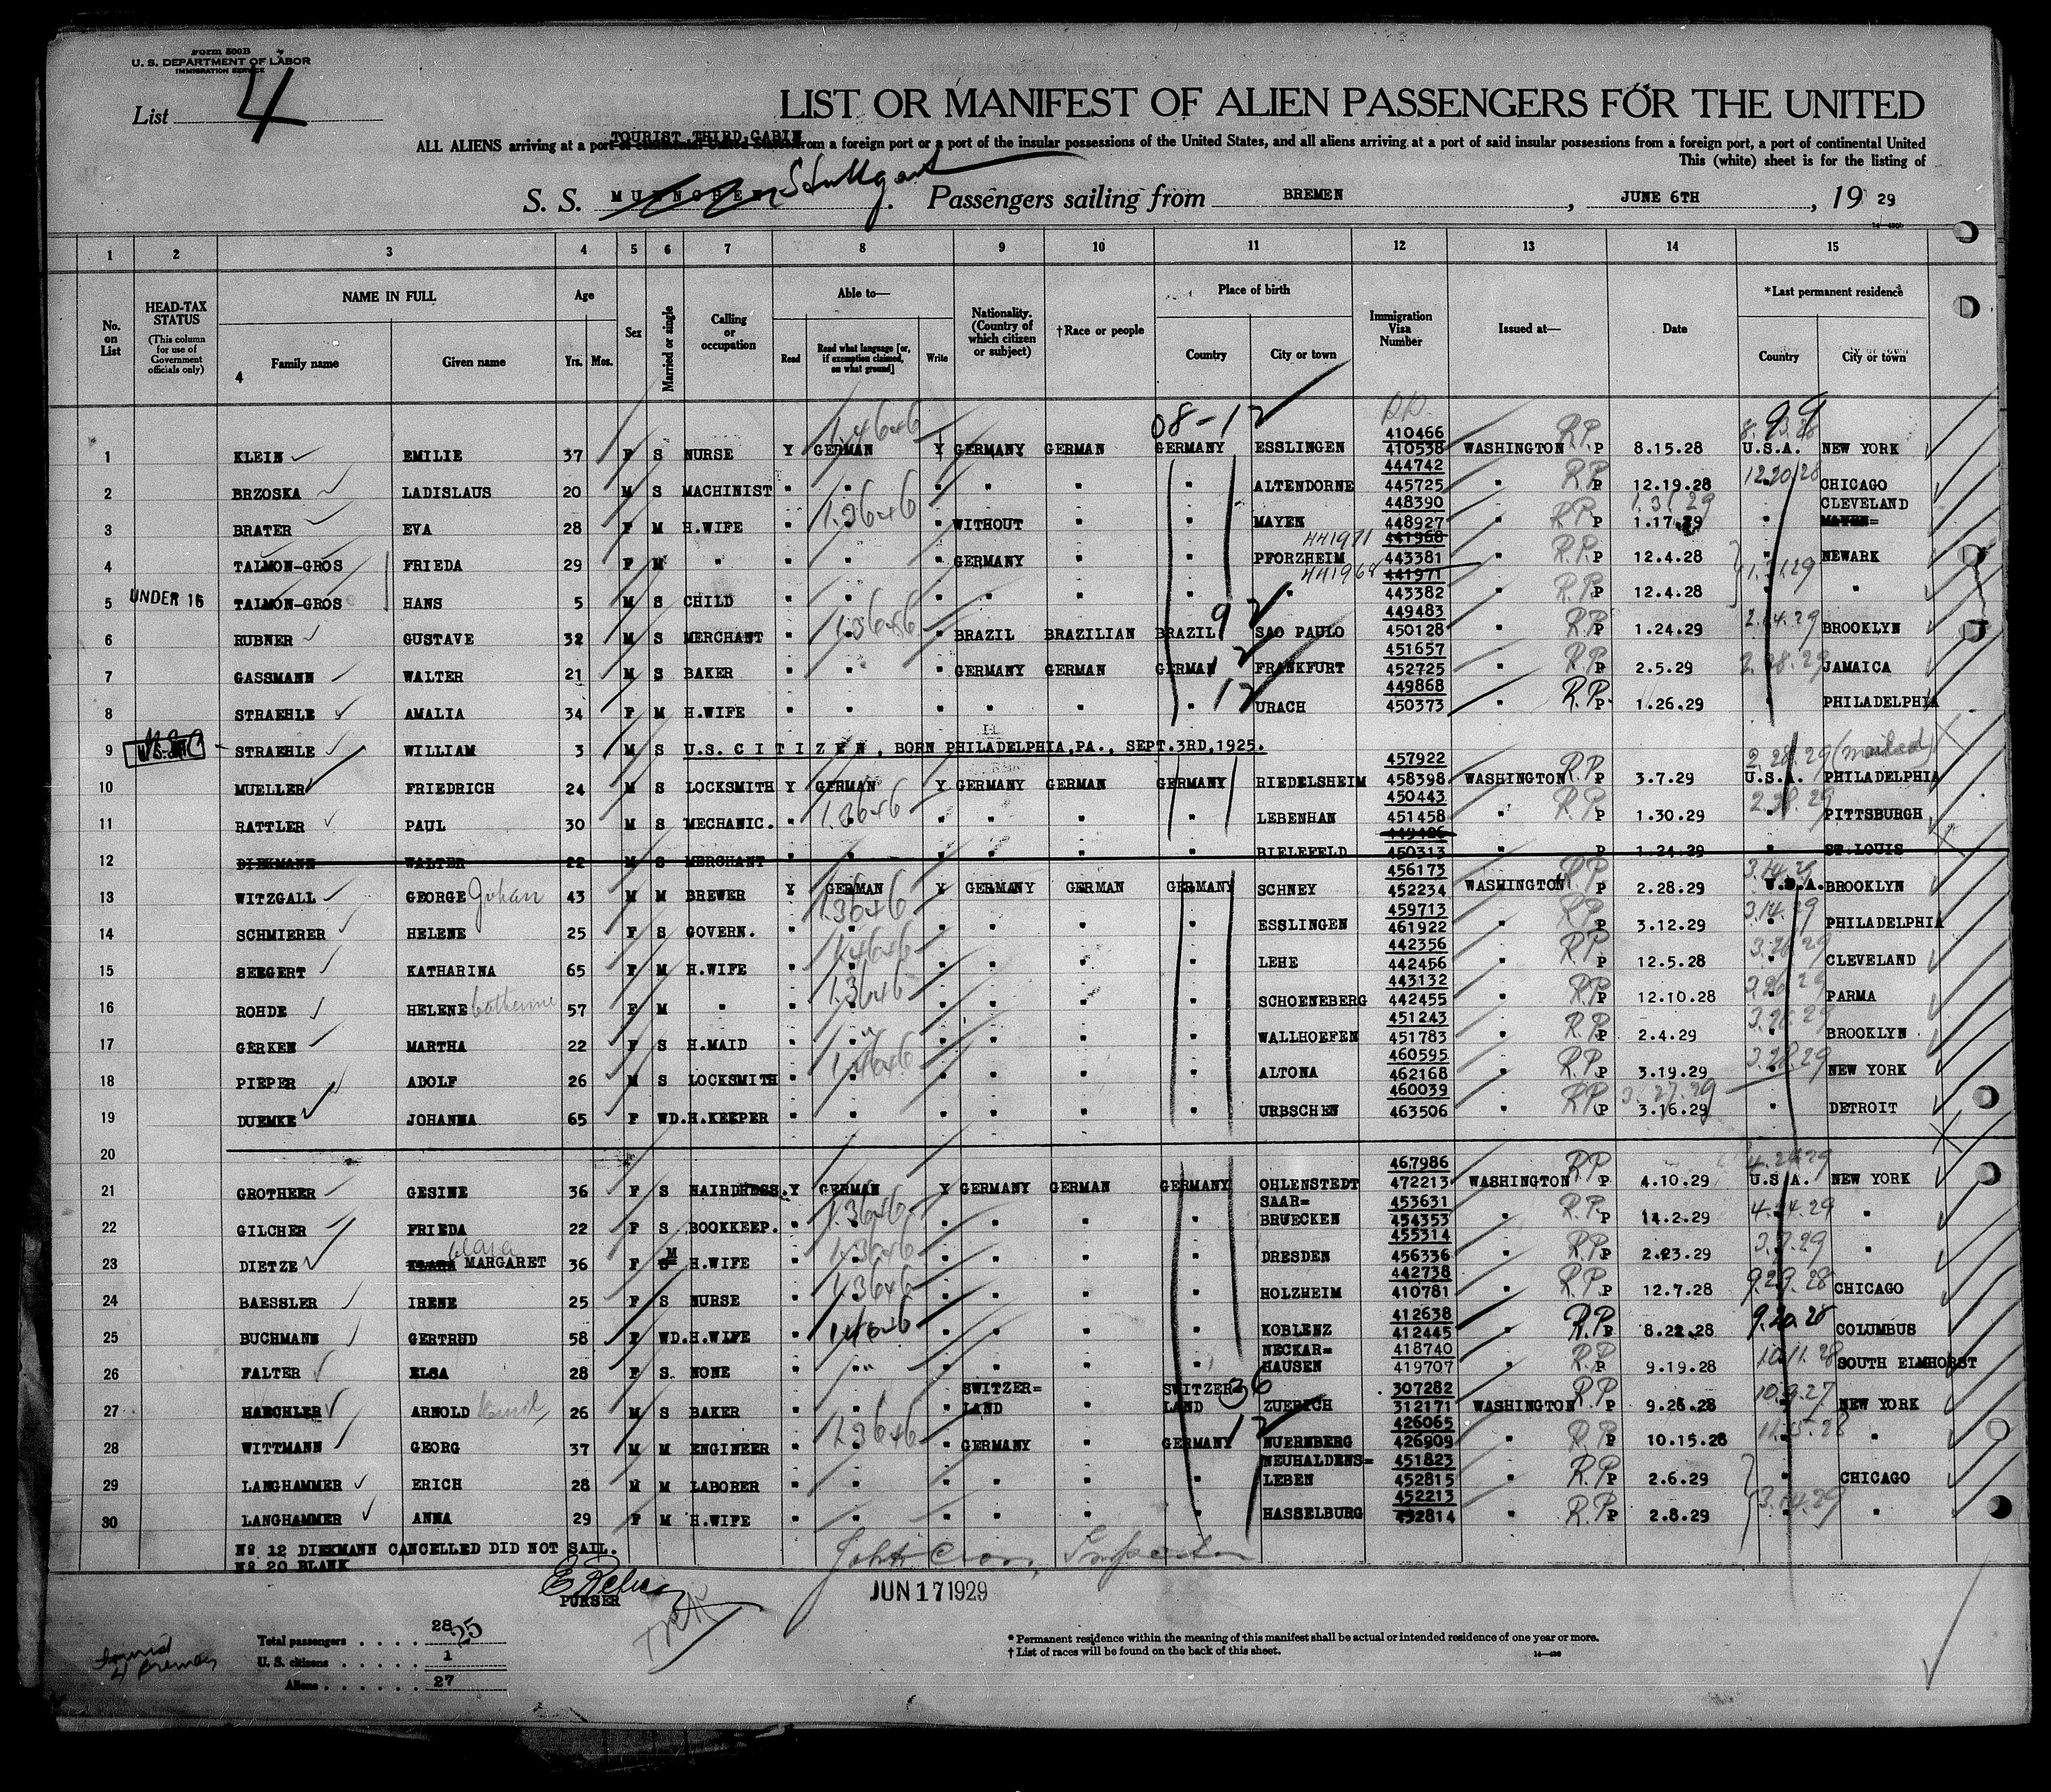 Form 500B
U. S. DEPARTMENT OF LABOR
IMMIGRATION SERVICE
List 4
LIST OR MANIFEST OF ALIEN PASSENGERS FOR THE UNITED
TOURIST THIRD CABIN
ALL ALIENS arriving at a port of continental United States from a foreign port or a port of the insular possessions of the United States, and all aliens arriving at a port of said insular possessions from a foreign port, a port of continental United
This (white) sheet is for the listing of
S. S. MUENCHEN Stuttgart. Passengers sailing from BREMEN, JUNE 6TH, 19 29
1 2 3 4 5 6 7 8 9 10 11 12 13 14 15
No. on List
HEAD-TAX STATUS
(This column for use of Government officials only)
NAME IN FULL
Family name
Given name
4
Age
Yrs. Mos.
Sex
Married or single
Calling or occupation
Able to—
Read
Read what language [or, if exemption claimed, on what ground]
Write
Nationality. (Country of which citizen or subject)
†Race or people
Place of birth
Country
City or town
Immigration Visa Number
Issued at—
Date
*Last permanent residence
Country
City or town
08-12 99
1 KLEIN EMILIE 37 F S NURSE Y GERMAN Y GERMANY GERMAN GERMANY ESSLINGEN 410466 410538 WASHINGTON R.P. P 8.15.28 U.S.A. NEW YORK
2 BRZOSKA LADISLAUS 20 M S MACHINIST " " " " " " ALTENDORNE 444742 445725 " R.P. P 12.19.28 12.20.28 " CHICAGO
3 BRATER EVA 28 F M H.WIFE " " " WITHOUT " " MAYEN 448390 448927 " R.P. P 1.17.29 1.31.29 " CLEVELAND MAYEN=
4 TALMON-GROS FRIEDA 29 F M " " " " GERMANY " " PFORZHEIM 441971 441968 443381 " R.P. P 12.4.28 " NEWARK
5 UNDER 16 TALMON-GROS HANS 5 M S CHILD " " " " " " " 441968 441971 443382 " R.P. P 12.4.28 " "
6 RUBNER GUSTAVE 32 M S MERCHANT " " " BRAZIL BRAZILIAN BRAZIL SAO PAULO 449483 450128 " R.P. P 1.24.29 BROOKLYN
7 GASSMANN WALTER 21 M S BAKER " " " GERMANY GERMAN GERMAN FRANKFURT 451657 452725 " R.P. P 2.5.29 JAMAICA
8 STRAEHLE AMALIA 34 F M H.WIFE " " " " " " URACH 449868 450373 " R.P. P 1.26.29 PHILADELPHIA
9 STRAEHLE WILLIAM 3 M S U.S. C I T I Z E N, BORN PHILADELPHIA, PA., SEPT.3RD,1925.
10 MUELLER FRIEDRICH 24 M S LOCKSMITH Y GERMAN Y GERMANY GERMAN GERMANY RIEDELSHEIM 457922 458398 WASHINGTON R.P P 3.7.29 2.28.29 (mailed) U.S.A. PHILADELPHIA
11 RATTLER PAUL 30 M S MECHANIC. " " " " " " LEBENHAN 450443 451458 " R.P P 1.30.29 " PITTSBURGH
12 DIEKMANN WALTER 22 M S MERCHANT " " " " " " BIELEFELD 449486 450313 " P 1.24.29 " ST.LOUIS
13 WITZGALL GEORGE Johan 43 M M BREWER Y GERMAN Y GERMANY GERMAN GERMANY SCHNEY 456173 452234 WASHINGTON R.P P 2.28.29 3.14.29 U.S.A. BROOKLYN
14 SCHMIERER HELENE 25 F S GOVERN. " " " " " " ESSLINGEN 459713 461922 " R.P. P 3.12.29 3.14.29 " PHILADELPHIA
15 SEEGERT KATHARINA 65 F M H.WIFE " " " " " " LEHE 442356 442456 " R.P. P 12.5.28 " CLEVELAND
16 ROHDE HELENE Catherine 57 F M " " " " " " " SCHOENEBERG 443132 442455 " R.P. P 12.10.28 " PARMA
17 GERKEN MARTHA 22 F S H.MAID " " " " " " WALLHOEFEN 451243 451783 " R.P. P 2.4.29 " BROOKLYN
18 PIEPER ADOLF 26 M S LOCKSMITH " " " " " " ALTONA 460595 462168 " R.P. P 3.19.29 3.28.29 NEW YORK
19 DUEMKE JOHANNA 65 F WD. H.KEEPER " " " " " " URBSCHEN 460039 463506 " R.P. P 3.16.29 3.27.29 " DETROIT
20
21 GROTHEER GESINE 36 F S HAIRDRESS. Y GERMAN Y GERMANY GERMAN GERMANY OHLENSTEDT 467986 472213 WASHINGTON R.P P 4.10.29 U.S.A. NEW YORK
22 GILCHER FRIEDA 22 F S BOOKKEEP. " " " " " " SAAR= BRUECKEN 453631 454353 " R.P. P 14.2.29 " "
23 DIETZE KLARA Clara MARGARET 36 F S M H.WIFE " " " " " " DRESDEN 455314 456336 " R.P P 2.23.29 " "
24 BAESSLER IRENE 25 F S NURSE " " " " " " HOLZHEIM 442738 410781 " R.P. P 12.7.28 CHICAGO
25 BUCHMANN GERTRUD 58 F WD. H.WIFE " " " " " " KOBLENZ 412638 412445 " R.P. P 8.22.28 9.20.28 COLUMBUS
26 FALTER ELSA 28 F S NONE " " " " " " NECKAR= HAUSEN 418740 419707 " R.P. P 9.19.28 10.11.28 SOUTH ELMHORST
27 HAECHLER ARNOLD 26 M S BAKER " " " SWITZER= LAND " SWITZER= LAND 36 ZUERICH 307282 312171 WASHINGTON R.P P 9.26.28 10.9.27 NEW YORK
28 WITTMANN GEORG 37 M M ENGINEER " " " GERMANY " GERMANY NUERNBERG 426065 426909 " R.P P 10.15.28 " "
29 LANGHAMMER ERICH 28 M M LABORER " " " " " " NEUHALDENS= LEBEN 451823 452815 " R.P. P 2.6.29 " CHICAGO
30 LANGHAMMER ANNA 29 F M H.WIFE " " " " " " HASSELBURG 452213 452814 " R.P. P 2.8.29 3.14.29 " "
Nº 12 DIEKMANN CANCELLED DID NOT SAIL.
Nº 20 BLANK
PURSER
JUN 17 1929
Total passengers . . . . 28 25
U. S. citizens . . . . . 1
Aliens . . . . . . 27
* Permanent residence within the meaning of this manifest shall be actual or intended residence of one year or more.
† List of races will be found on the back of this sheet.
14—420